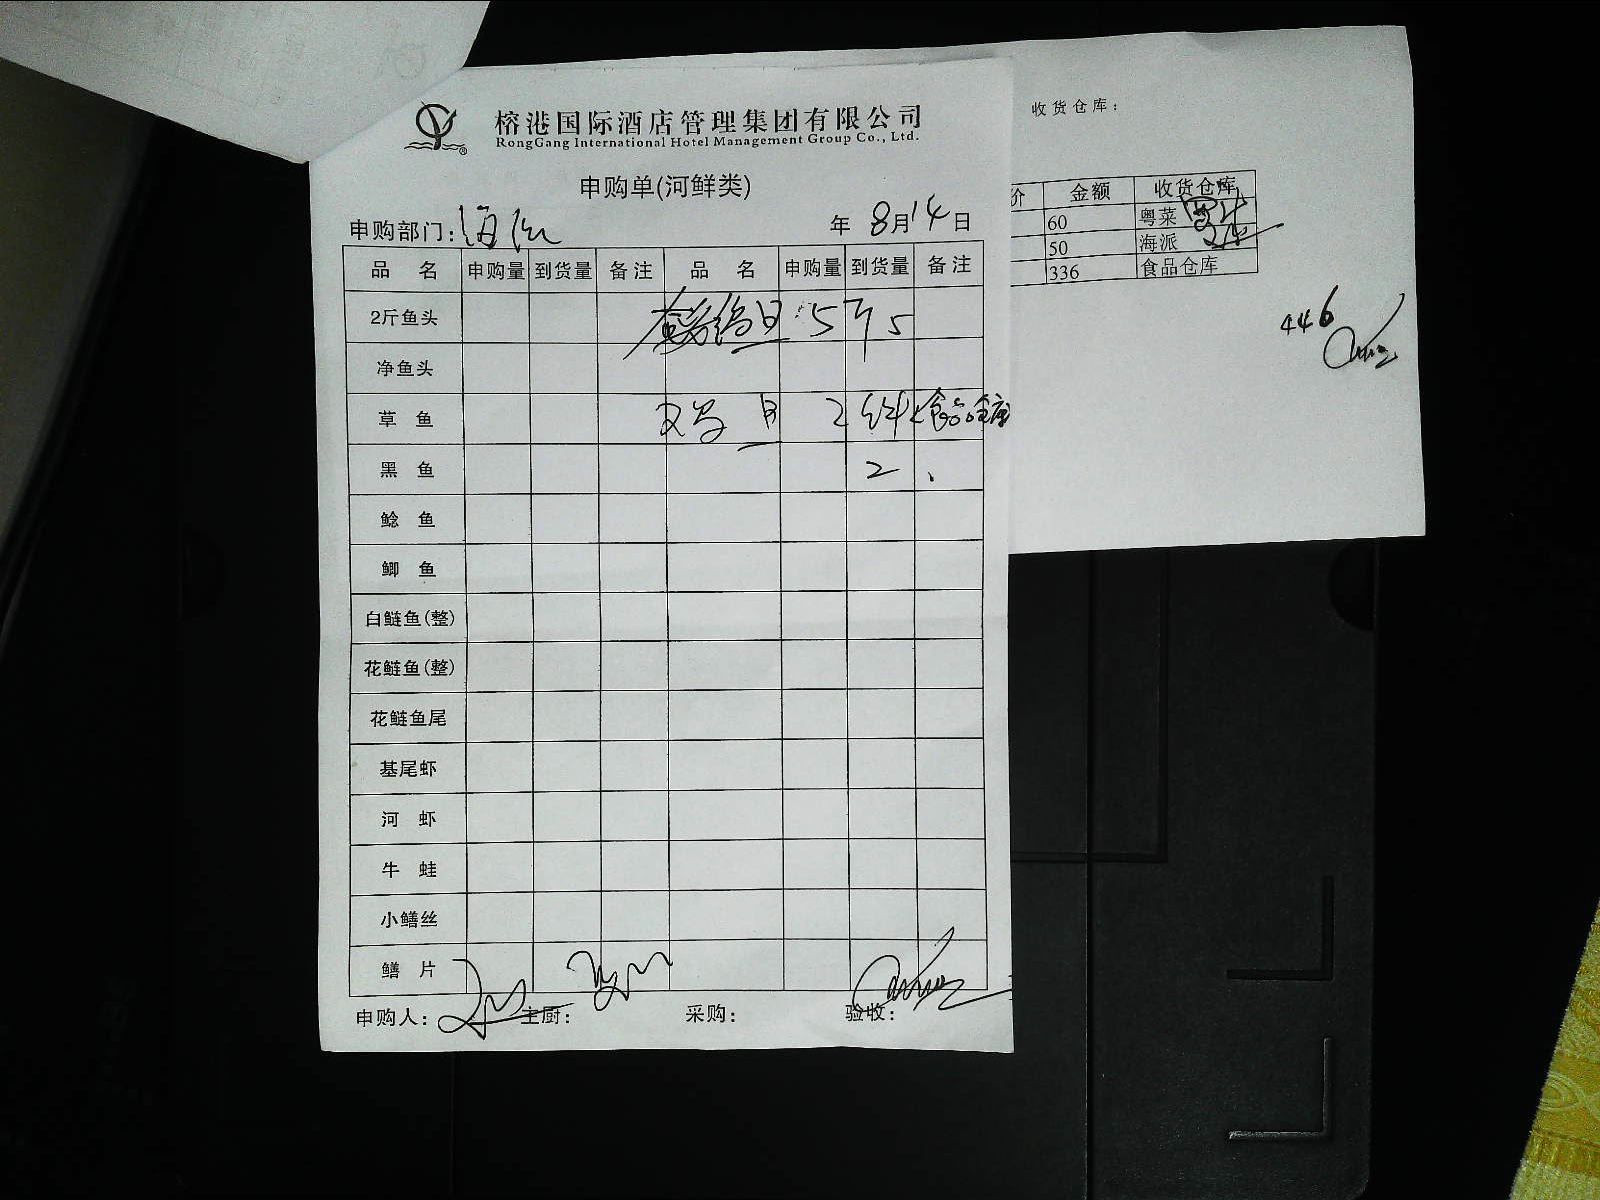 榕港国际酒店管理集团有限公司
RongGang International Hotel Management Group Co., Ltd.
申购单(河鲜类)
申购部门: 海派 年 8月14日
品 名 申购量 到货量 备注 品 名 申购量 到货量 备注
2斤鱼头 5斤 5
净鱼头
草 鱼 鸡蛋 2 件 食品仓库
黑 鱼 2
鲶 鱼
鲫 鱼
白鲢鱼(整)
花鲢鱼(整)
花鲢鱼尾
基尾虾
河 虾
牛 蛙
小鳝丝
鳝 片
申购人: 主厨: 采购: 验收:
收货仓库:
价 金额 收货仓库
60 粤菜
50 海派
336 食品仓库
446